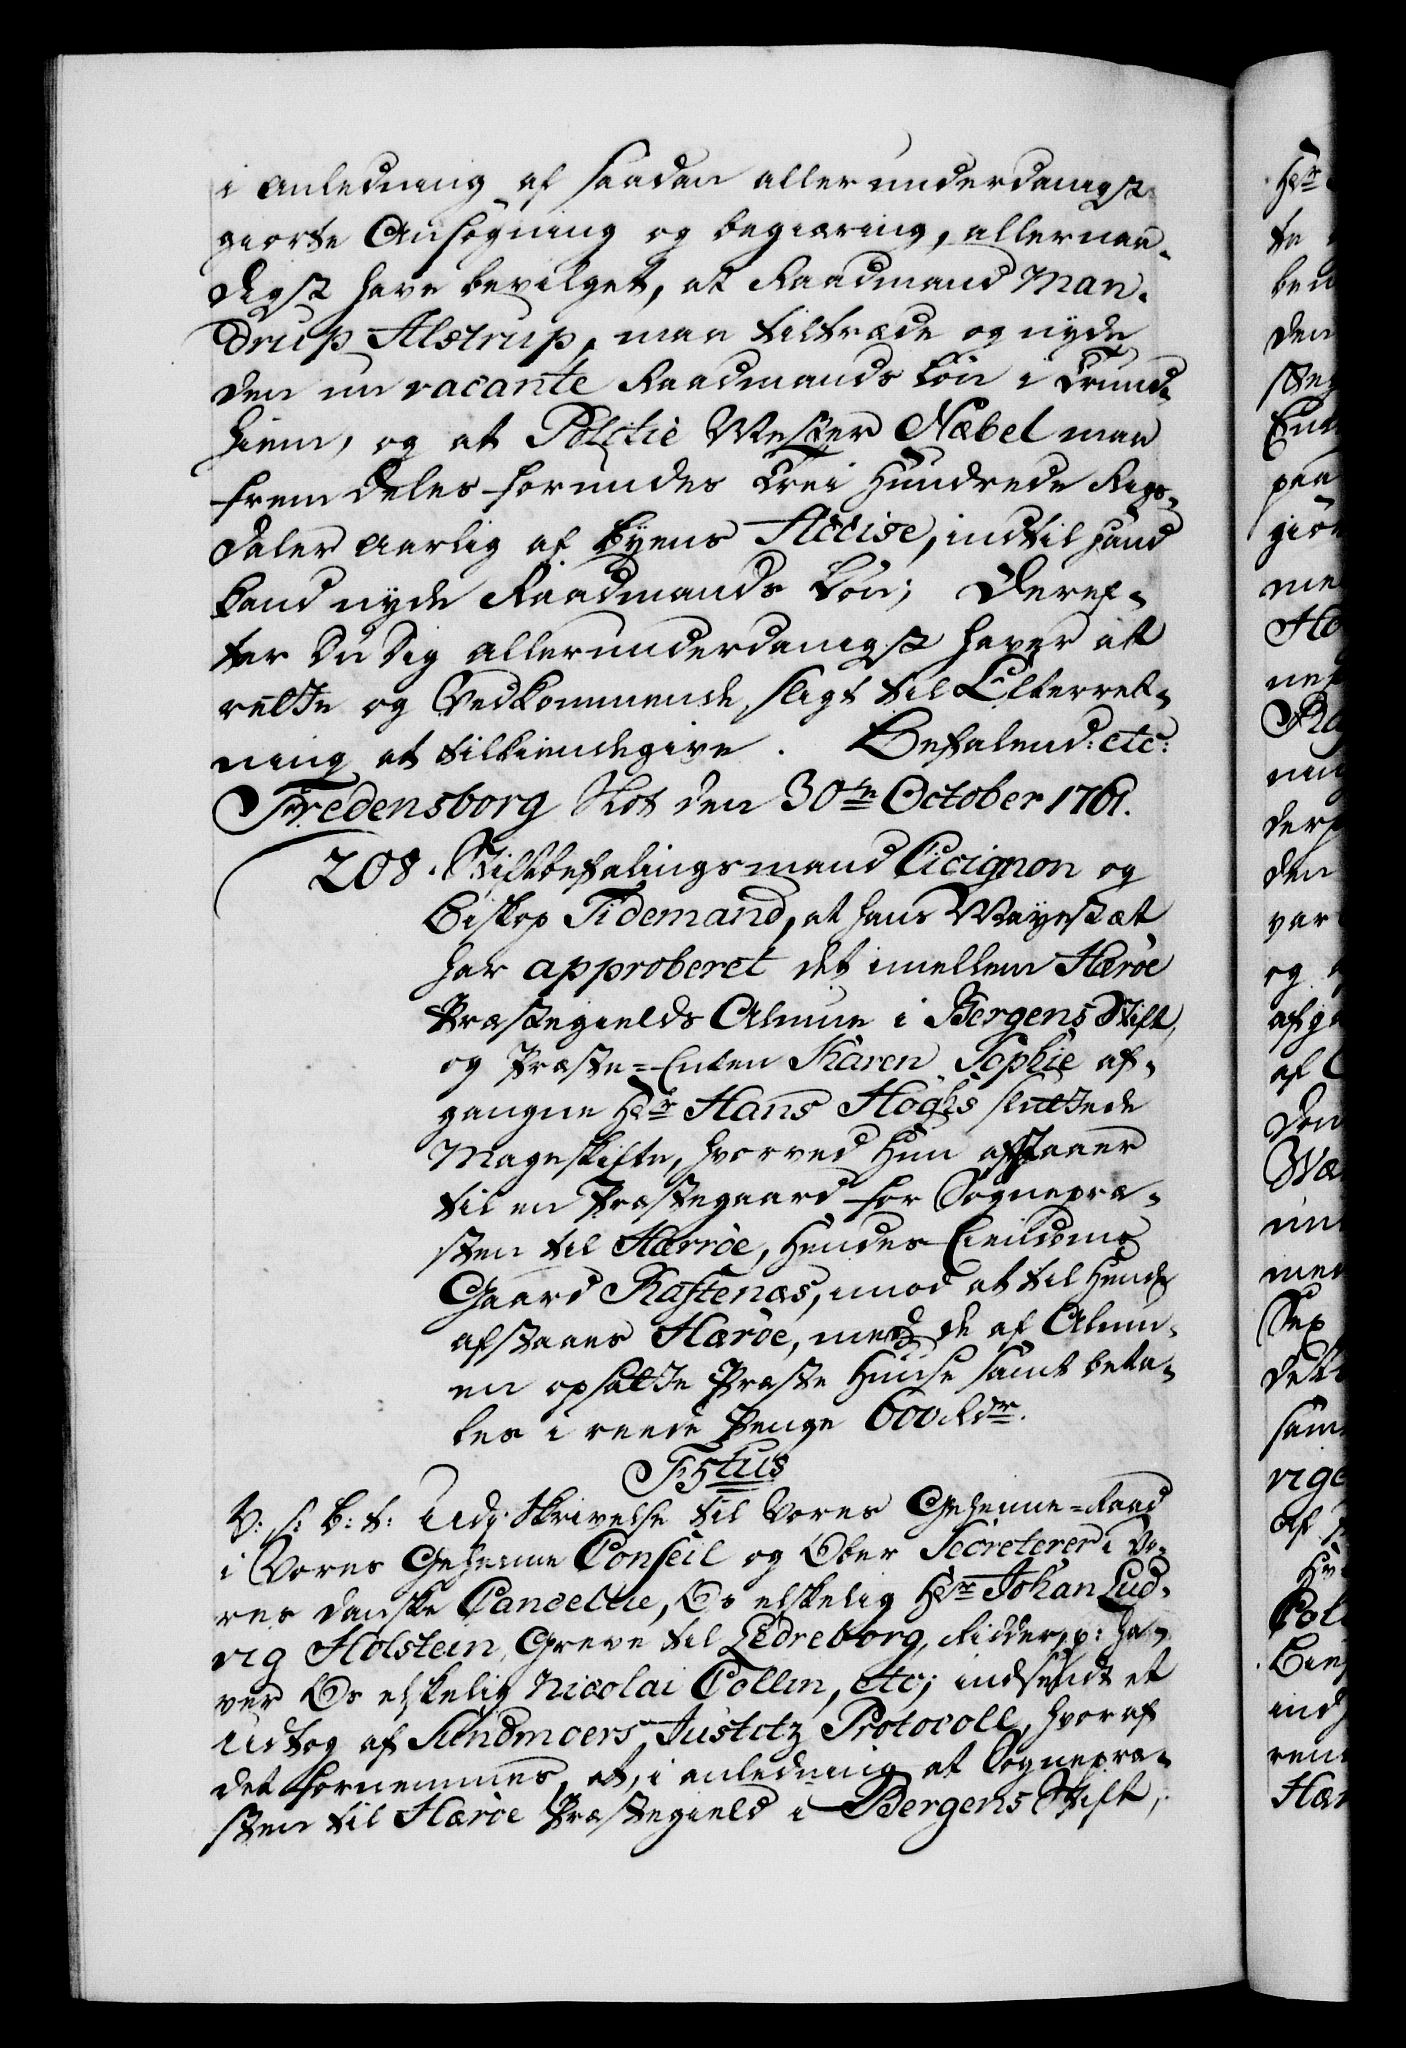 i Anledning af saadan allerunderdanigst
giorte Ansøgning og begiæring, allernaa-
digst have bevilget, at Raadmand Man-
drup Alstrup, maa tiltræde og nyde
den nu vacante Raadmands Løn i Trund-
hiem, og at Politie Mester Næbel maa
fremdeles forundes Trei Hundrede Rigs-
daler Aarlig af Byens Accise, indtil hand
kand nyde Raadmands Løn; Deref-
ter Du Dig allerunderdanigst haver at
rette og Vedkommende sligt til Efterret-
ning at tilkiendegive. Befalend: etc:
Fredensborg Slot den 30te October 1761.
208. Stiftbefalingsmand Cicignon og
Biskop Tidemand, at hans Mayestæt
har approberet det imellem Hærøe
Præstegields Almue i Bergens Stift,
og Præste-Enken Karen Sophie af-
gangne Hr Hans Höghs sluttede
Mageskifte, hvorved Hun afstaaer
til en Præstegaard for Sognepræ-
sten til Hærröe, Hendes Eiendoms
Gaard Raftenæs, imod at til Hende
afstaaes Hærøe, med de af Almu-
en opsatte Præste Huuse samt beta-
les i reede Penge 600 Rdr.
F5tus
V: s: B: t: Udi Skrivelse til Vores Geheime-Raad
i Vores Geheime Conseil og Ober Secreterer i Vo-
res danske Cancellie, Os elskelig Hr Johan Lud-
vig Holstein, Greve til Ledreborg, Ridder, p: ha-
ver Os elskelig Nicolai Collin, etc; indsendt et
Udtog af Sundmoers Justitz Protocoll, hvoraf
det fornemmes, at, i anledning at Sognepræ-
sten til Hærøe Præstegield i Bergens Stift,